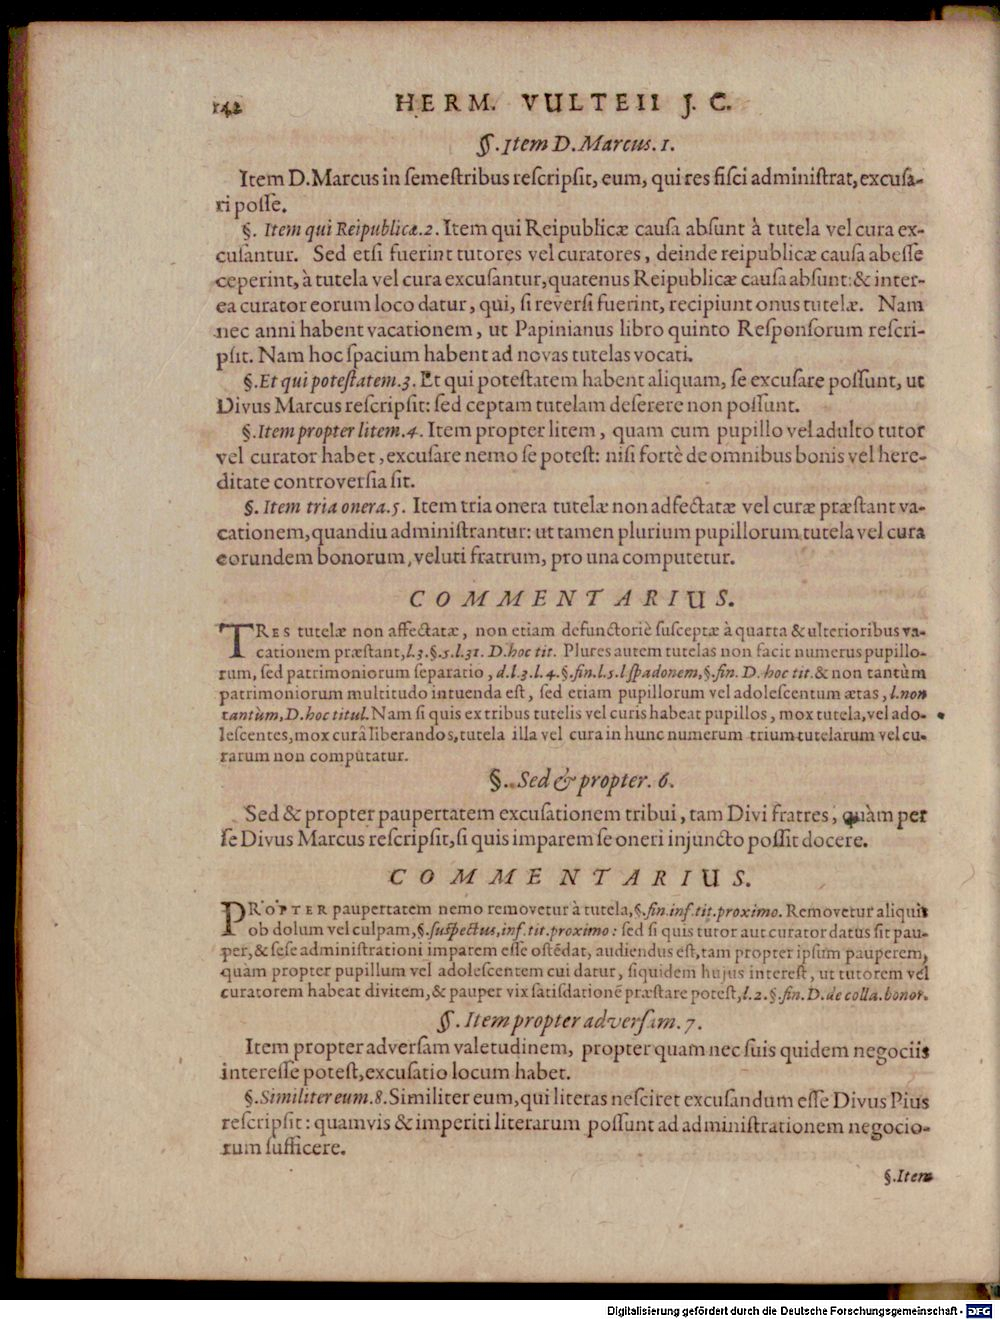 142 HERM. VULTEII J. C.
§. Item D. Marcus. 1.
Item D. Marcus in semestribus rescripsit, eum, qui res fisci administrat, excusa-
ri posse.
§. Item qui Reipublicæ. 2. Item qui Reipublicæ causa absunt à tutela vel cura ex-
cusantur. Sed etsi fuerint tutores vel curatores, deinde reipublicæ causa abesse
ceperint, à tutela vel cura excusantur, quatenus Reipublicæ causa absunt: & inter-
ea curator eorum loco datur, qui, si reversi fuerint, recipiunt onus tutelæ. Nam
nec anni habent vacationem, ut Papinianus libro quinto Responsorum rescri-
psit. Nam hoc spacium habent ad novas tutelas vocati.
§. Et qui potestatem. 3. Et qui potestatem habent aliquam, se excusare possunt, ut
Divus Marcus rescripsit: sed ceptam tutelam deserere non possunt.
§. Item propter litem. 4. Item propter litem, quam cum pupillo vel adulto tutor
vel curator habet, excusare nemo se potest: nisi fortè de omnibus bonis vel here-
ditate controversia sit.
§. Item tria onera. 5. Item tria onera tutelæ non adfectatæ vel curæ præstant va-
cationem, quandiu administrantur: ut tamen plurium pupillorum tutela vel cura
eorundem bonorum, veluti fratrum, pro una computetur.
COMMENTARIUS.
TRES tutelæ non affectatæ, non etiam defunctoriè susceptæ à quarta & ulterioribus va-
cationem præstant, l.3.§.5.l.31. D. hoc tit. Plures autem tutelas non facit numerus pupillo-
rum, sed patrimoniorum separatio, d.l.3.l.4.§.fin.l.5.l spadonem, §. fin. D. hoc tit. & non tantùm
patrimoniorum multitudo intuenda est, sed etiam pupillorum vel adolescentum ætas, l. non
tantùm, D. hoc titul. Nam si quis ex tribus tutelis vel curis habeat pupillos, mox tutela, vel ado-
lescentes, mox curâ liberandos, tutela illa vel cura in hunc numerum trium tutelarum vel cu-
rarum non computatur.
§. Sed & propter. 6.
Sed & propter paupertatem excusationem tribui, tam Divi fratres, quàm per
se Divus Marcus rescripsit, si quis imparem se oneri injuncto possit docere.
COMMENTARIUS.
PROPTER paupertatem nemo removetur à tutela, §. fin. inf. tit. proximo. Removetur aliquis
ob dolum vel culpam, §. suspectus, inf. tit. proximo: sed si quis tutor aut curator datus sit pau-
per, & sese administrationi imparem esse ostēdat, audiendus est, tam propter ipsum pauperem,
quàm propter pupillum vel adolescentem cui datur, siquidem hujus interest, ut tutorem vel
curatorem habeat divitem, & pauper vix satisdationē præstare potest, l.2.§. fin. D. de colla. bonor.
§. Item propter adversam. 7.
Item propter adversam valetudinem, propter quam nec suis quidem negociis
interesse potest, excusatio locum habet.
§. Similiter eum. 8. Similiter eum, qui literas nesciret excusandum esse Divus Pius
rescripsit: quamvis & imperiti literarum possunt ad administrationem negocio-
rum sufficere.
§. Item
Digitalisierung gefördert durch die Deutsche Forschungsgemeinschaft - DFG